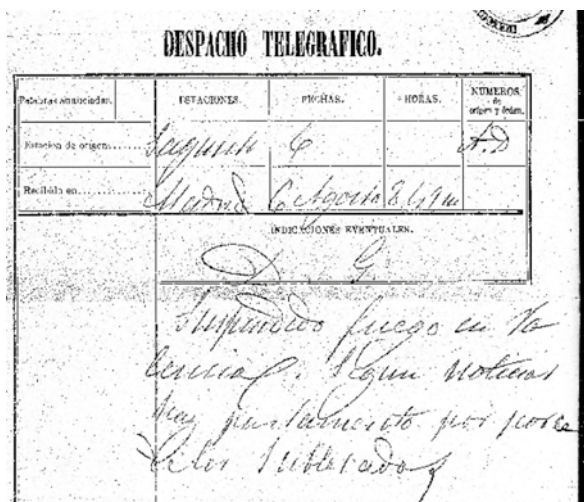 DESPACHO TELEGRAFICO.
Palabras anunciadas. ESTACIONES. FECHAS. HORAS. NUMEROS de origen y órden.
Estacion de origen...... Sagunto 6 A.D
Recibida en............. Madrid 6 Agosto
INDICACIONES EVENTUALES.
D. G
Suspendido fuego en Va
lencia. Segun noticias
hay parlamento por parte
de los sublevados